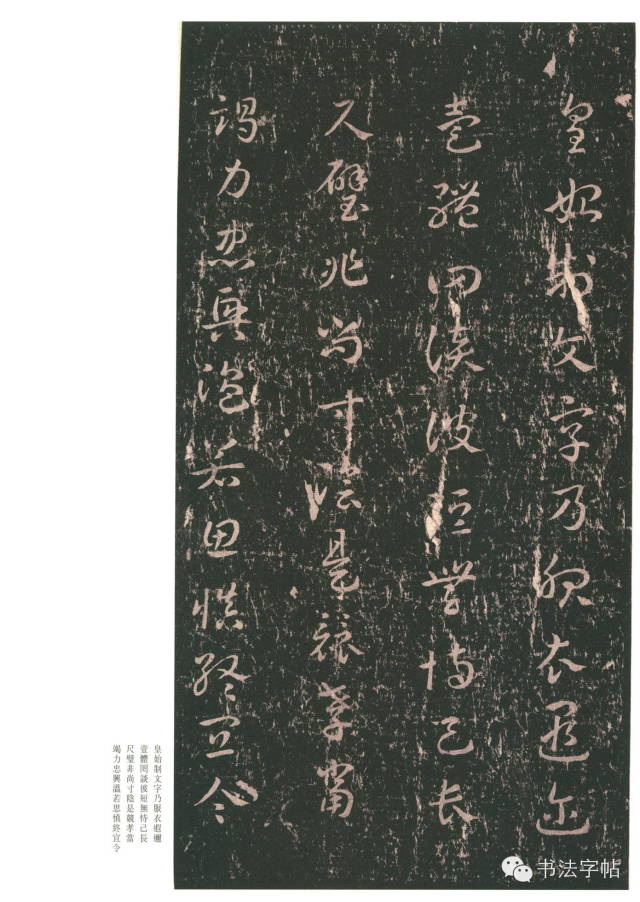 皇始制文字乃服衣遐邇
壹體罔談彼短無恃己長
尺璧非尚寸陰是競孝當
竭力忠興溫若思慎終宜令
皇始制文字乃服衣遐邇
壹體罔談彼短無恃己長
尺璧非尚寸陰是競孝當
竭力忠興溫若思慎終宜令
书法字帖